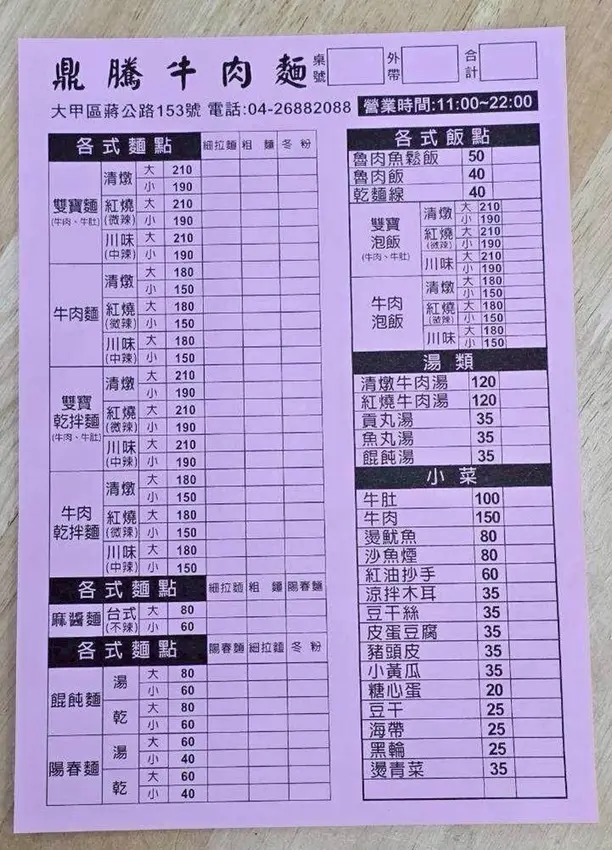 鼎騰牛肉麵 桌號 外帶 合計
大甲區蔣公路153號 電話:04-26882088 營業時間:11:00~22:00
各式麵點 細拉麵 粗麵 冬粉
雙寶麵 (牛肉、牛肚) 清燉 大 210
小 190
紅燒 (微辣) 大 210
小 190
川味 (中辣) 大 210
小 190
牛肉麵 清燉 大 180
小 150
紅燒 (微辣) 大 180
小 150
川味 (中辣) 大 180
小 150
雙寶乾拌麵 (牛肉、牛肚) 清燉 大 210
小 190
紅燒 (微辣) 大 210
小 190
川味 (中辣) 大 210
小 190
牛肉乾拌麵 清燉 大 180
小 150
紅燒 (微辣) 大 180
小 150
川味 (中辣) 大 180
小 150
各式麵點 細拉麵 粗麵 陽春麵
麻醬麵 台式 (不辣) 大 80
小 60
各式麵點 陽春麵 細拉麵 冬粉
餛飩麵 湯 大 80
小 60
乾 大 80
小 60
陽春麵 湯 大 60
小 40
乾 大 60
小 40
各式飯點
魯肉魚鬆飯 50
魯肉飯 40
乾麵線 40
雙寶泡飯 (牛肉、牛肚) 清燉 大 210
小 190
紅燒 (微辣) 大 210
小 190
川味 大 210
小 190
牛肉泡飯 清燉 大 180
小 150
紅燒 (微辣) 大 180
小 150
川味 大 180
小 150
湯類
清燉牛肉湯 120
紅燒牛肉湯 120
貢丸湯 35
魚丸湯 35
餛飩湯 35
小菜
牛肚 100
牛肉 150
燙魷魚 80
沙魚煙 80
紅油抄手 60
涼拌木耳 35
豆干絲 35
皮蛋豆腐 35
豬頭皮 35
小黃瓜 35
糖心蛋 20
豆干 25
海帶 25
黑輪 25
燙青菜 35